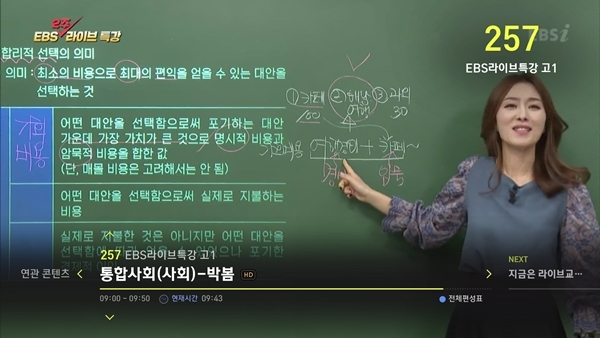 2주
EBS 라이브 특강
EBSi
257
EBS라이브특강 고1
합리적 선택의 의미
의미 : 최소의 비용으로 최대의 편익을 얻을 수 있는 대안을
선택하는 것
어떤 대안을 선택함으로써 포기하는 대안
가운데 가장 가치가 큰 것으로 명시적 비용과
암묵적 비용을 합한 값
(단, 매몰 비용은 고려해서는 안 됨)
어떤 대안을 선택함으로써 실제로 지불하는
비용
실제로 지불한 것은 아니지만 어떤 대안을
① 카페 ② ③ 과외
100 30
257 EBS라이브특강 고1
연관 콘텐츠
통합사회(사회)-박봄 HD
09:00 - 09:50 현재시간 09:43
전체편성표
NEXT
지금은 라이브교…